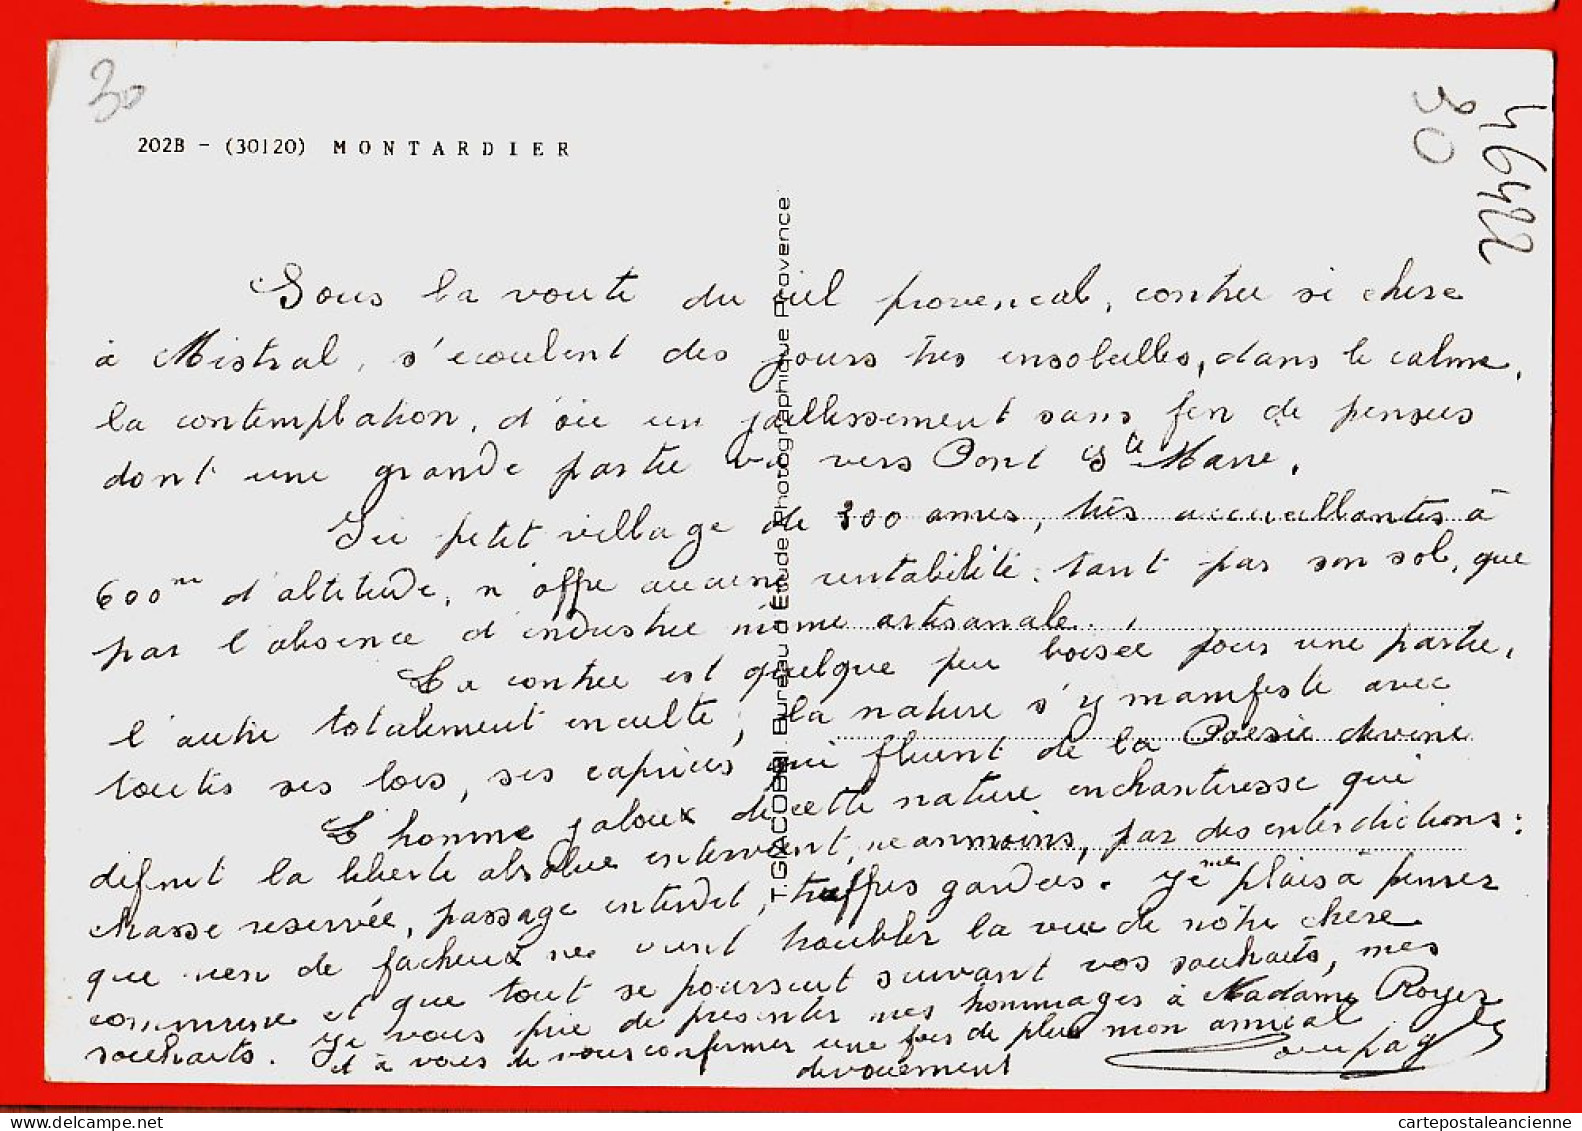 30
30
46422
202B - (30120) MONTARDIER
T. GIACOBBI. Bureau d'Etude Photographique Provence
Sous la voute du ciel provencal, contrée si chère
à Mistral, s'ecoulent des jours très ensoleilles, dans le calme,
la contemplation, d'où un jaillissement sans fin de pensées
dont une grande partie va vers Pont Ste Marie.
petit village de 300 ames, très accueillantes à
600m d'altitude, n'offre aucune rentabilité, tant par son sol, que
par l'absence d'industrie même artisanale.
La contrée est quelque peu boisée pour une partie,
l'autre totalement inculte; la nature s'y manifeste avec
toutes ses lois, ses caprices qui fluent de la Poesie divine
L'homme jaloux de cette nature enchanteresse qui
definit la liberté absolue intervient, neanmoins, par des interdictions:
chasse reservée, passage interdit, truffes gardées. Je me plais à penser
que rien de facheux ne vient troubler la vie de notre chère
commune et que tout se poursuit suivant vos souhaits, mes
souhaits. Je vous prie de presenter mes hommages à Madame Royer
et à vous de vous confirmer une fois de plus mon amical
devouement